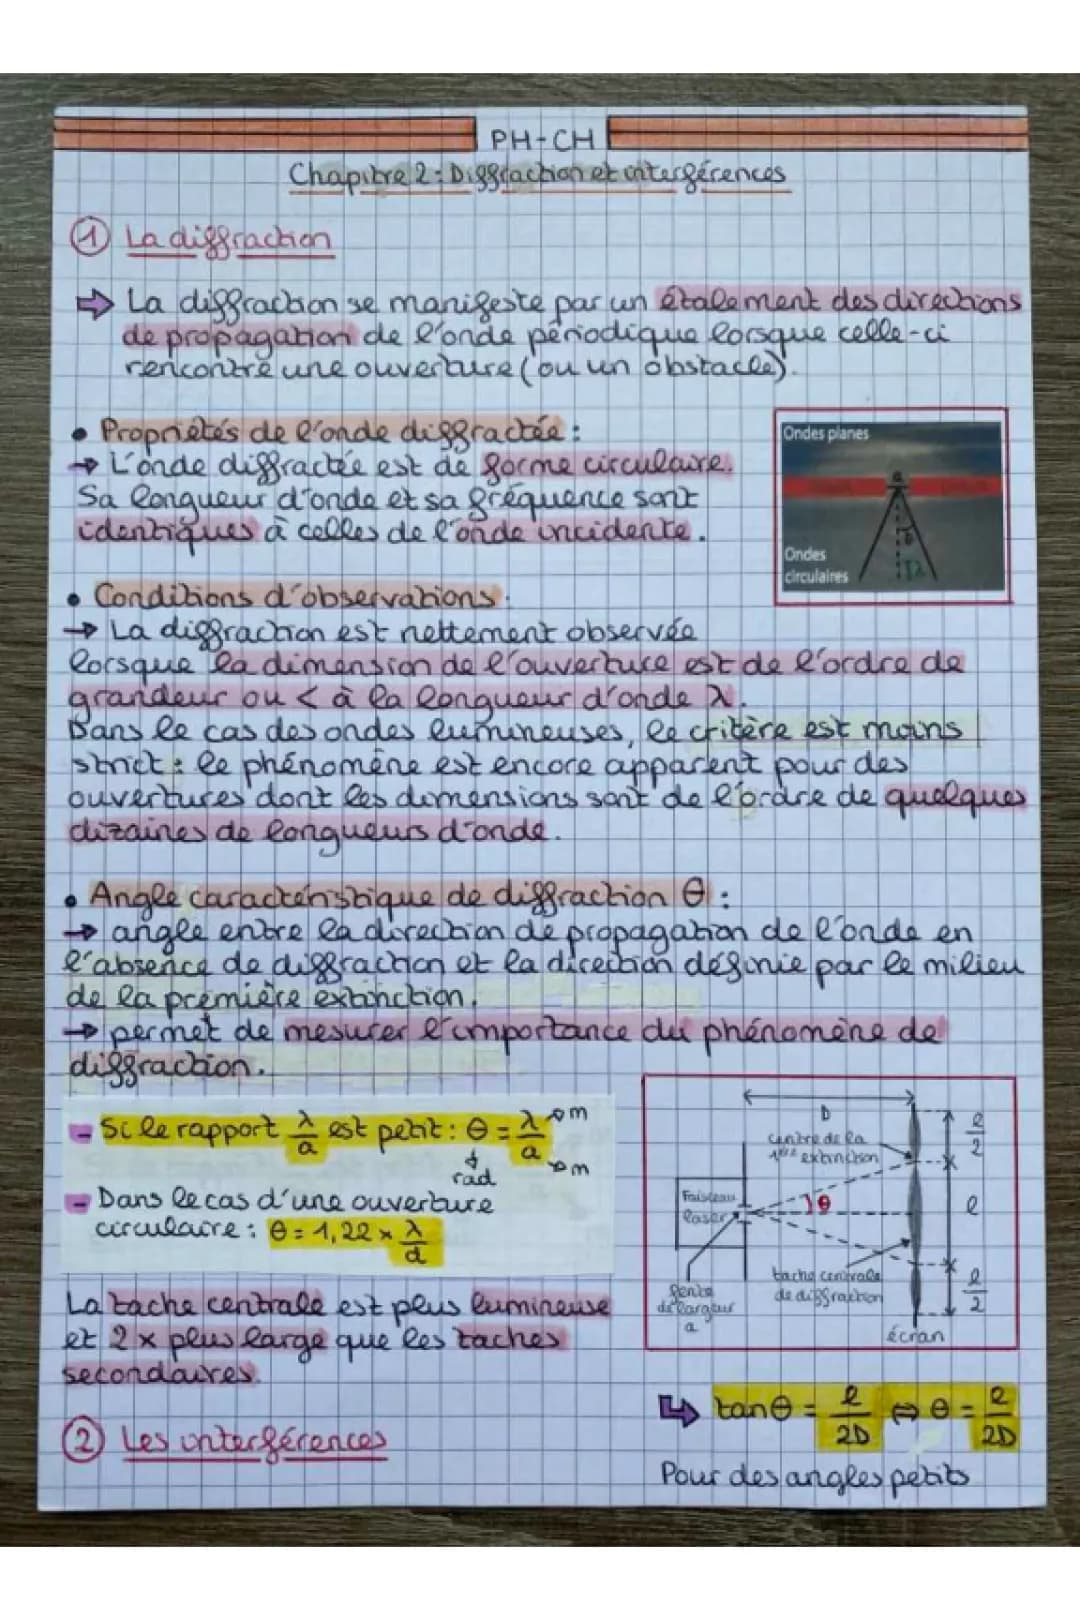 PH-CH
Chapitre 2 : Diffraction et interférences
① La diffraction
⇨ La diffraction se manifeste par un étalement des directions
de propagation de l'onde périodique lorsque celle-ci
rencontre une ouverture (ou un obstacle).
• Propriétés de l'onde diffractée :
→ L'onde diffractée est de forme circulaire.
Sa longueur d'onde et sa fréquence sont
identiques à celles de l'onde incidente.
Ondes planes
a
θ
Ondes
circulaires
• Conditions d'observations :
→ La diffraction est nettement observée
lorsque la dimension de l'ouverture est de l'ordre de
grandeur ou < à la longueur d'onde λ.
Dans le cas des ondes lumineuses, le critère est moins
strict : le phénomène est encore apparent pour des
ouvertures dont les dimensions sont de l'ordre de quelques
dizaines de longueurs d'onde.
• Angle caractéristique de diffraction θ :
→ angle entre la direction de propagation de l'onde en
l'absence de diffraction et la direction définie par le milieu
de la première extinction.
→ permet de mesurer l'importance du phénomène de
diffraction.
- Si le rapport λ/a est petit : θ = λ/a
m
m
rad
- Dans le cas d'une ouverture
circulaire : θ = 1,22 × λ/d
La tache centrale est plus lumineuse
et 2 x plus large que les taches
secondaires.
D
centre de la
1ère extinction
Faisceau
laser
θ
fente
de largeur
a
tache centrale
de diffraction
écran
ℓ/2
ℓ
ℓ/2
↳ tan θ = ℓ/2D ⇔ θ = ℓ/2D
Pour des angles petits
② Les interférences